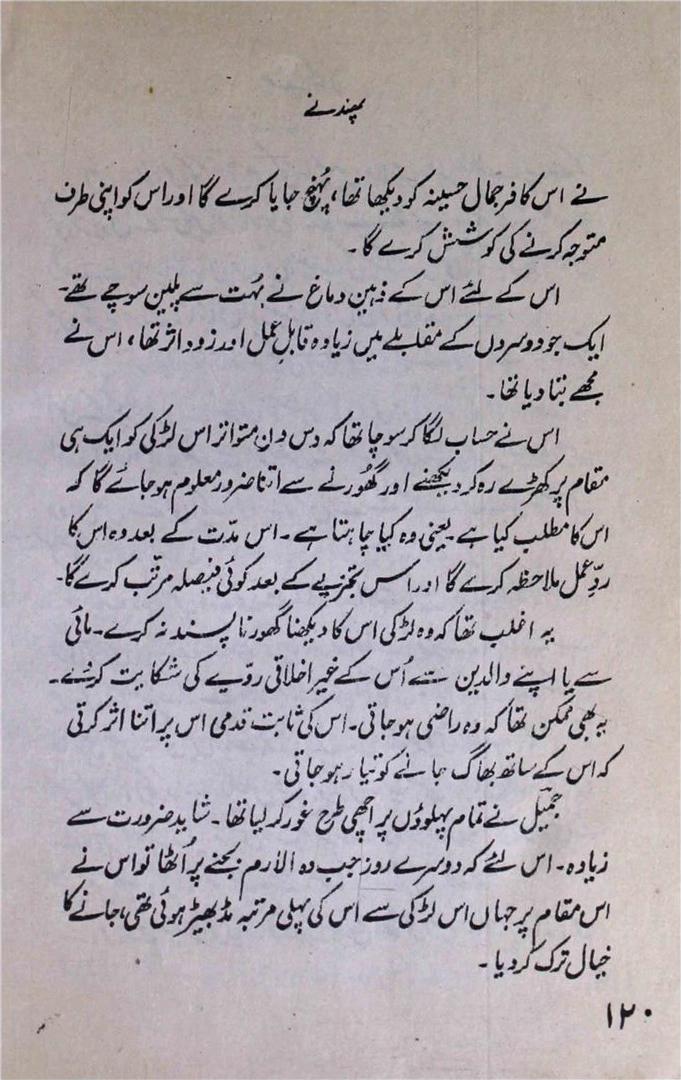 پھندنے
نے اس کافر جمال حسینہ کو دیکھا تھا، پہُنچ جایا کرے گا اور اس کو اپنی طرف
متوجہ کرنے کی کوشش کرے گا۔
اس کے لئے اس کے ذہین دماغ نے بہُت سے پلین سوچے تھے۔
ایک جو دوسروں کے مقابلے میں زیادہ قابلِ عمل اور زود اثر تھا، اس نے
مجھے بتا دیا تھا۔
اس نے حساب لگا کر سوچا تھا کہ دس دن متواتر اس لڑکی کو ایک ہی
مقام پر کھڑے رہ کر دیکھنے اور گھُورنے سے اتنا ضرور معلوم ہو جائے گا کہ
اس کا مطلب کیا ہے یعنی وہ کیا چاہتا ہے۔ اس مدّت کے بعد وہ اس کا
ردِّ عمل ملاحظہ کرے گا اور اس تجزیے کے بعد کوئی فیصلہ مرتّب کرے گا۔
یہ اغلب تھا کہ وہ لڑکی اس کا دیکھنا گھورنا پسند نہ کرے۔ مائی
سے یا اپنے والدین سے اُس کے غیر اخلاقی رویّے کی شکایت کر دے۔
یہ بھی ممکن تھا کہ وہ راضی ہو جاتی۔ اس کی ثابت قدمی اس پر اتنا اثر کرتی
کہ اس کے ساتھ بھاگ جانے کو تیار ہو جاتی۔
جمیل نے تمام پہلوؤں پر اچھی طرح غور کر لیا تھا۔ شاید ضرورت سے
زیادہ۔ اس لئے کہ دوسرے روز جب وہ الارم بجنے پر اُٹھا تو اس نے
اس مقام پر جہاں اس لڑکی سے اس کی پہلی مرتبہ مڈبھیڑ ہوئی تھی، جانے کا
خیال ترک کر دیا۔
۱۲۰